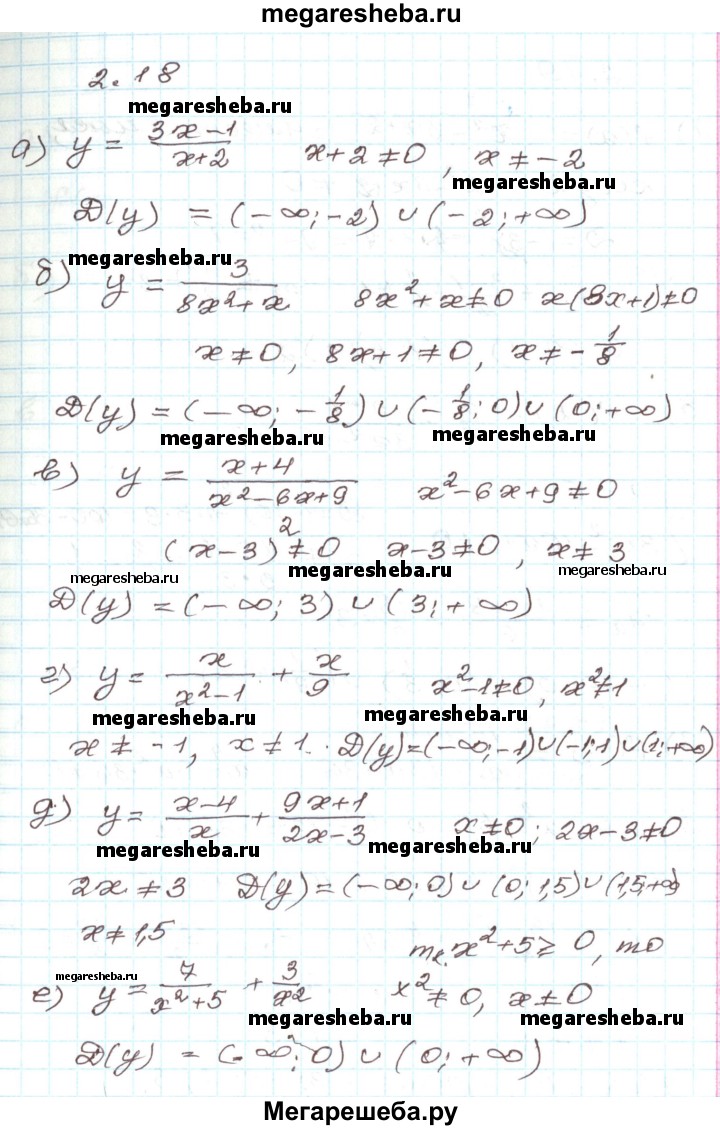 megaresheba.ru
2.18
megaresheba.ru
а) y = (3x-1)/(x+2)   x+2≠0, x≠-2
megaresheba.ru
D(y) = (-∞;-2) ∪ (-2;+∞)
megaresheba.ru
б) y = 3/(8x²+x)   8x²+x≠0   x(8x+1)≠0
x≠0, 8x+1≠0, x≠-1/8
D(y) = (-∞; -1/8) ∪ (-1/8; 0) ∪ (0;+∞)
megaresheba.ru megaresheba.ru
в) y = (x+4)/(x²-6x+9)   x²-6x+9≠0
(x-3)²≠0   x-3≠0, x≠3
megaresheba.ru megaresheba.ru megaresheba.ru
D(y) = (-∞; 3) ∪ (3;+∞)
г) y = x/(x²-1) + x/9   x²-1≠0, x²≠1
megaresheba.ru megaresheba.ru
x≠-1, x≠1. D(y)=(-∞;-1)∪(-1;1)∪(1;+∞)
д) y = (x-4)/x + (9x+1)/(2x-3)   x≠0; 2x-3≠0
megaresheba.ru megaresheba.ru
2x≠3   D(y)=(-∞;0)∪(0;1,5)∪(1,5;+∞)
x≠1,5
т.к. x²+5≥0, то
megaresheba.ru
е) y = 7/(x²+5) + 3/x²   x²≠0, x≠0
megaresheba.ru megaresheba.ru
D(y) = (-∞;0) ∪ (0;+∞)
Мегарешеба.ру